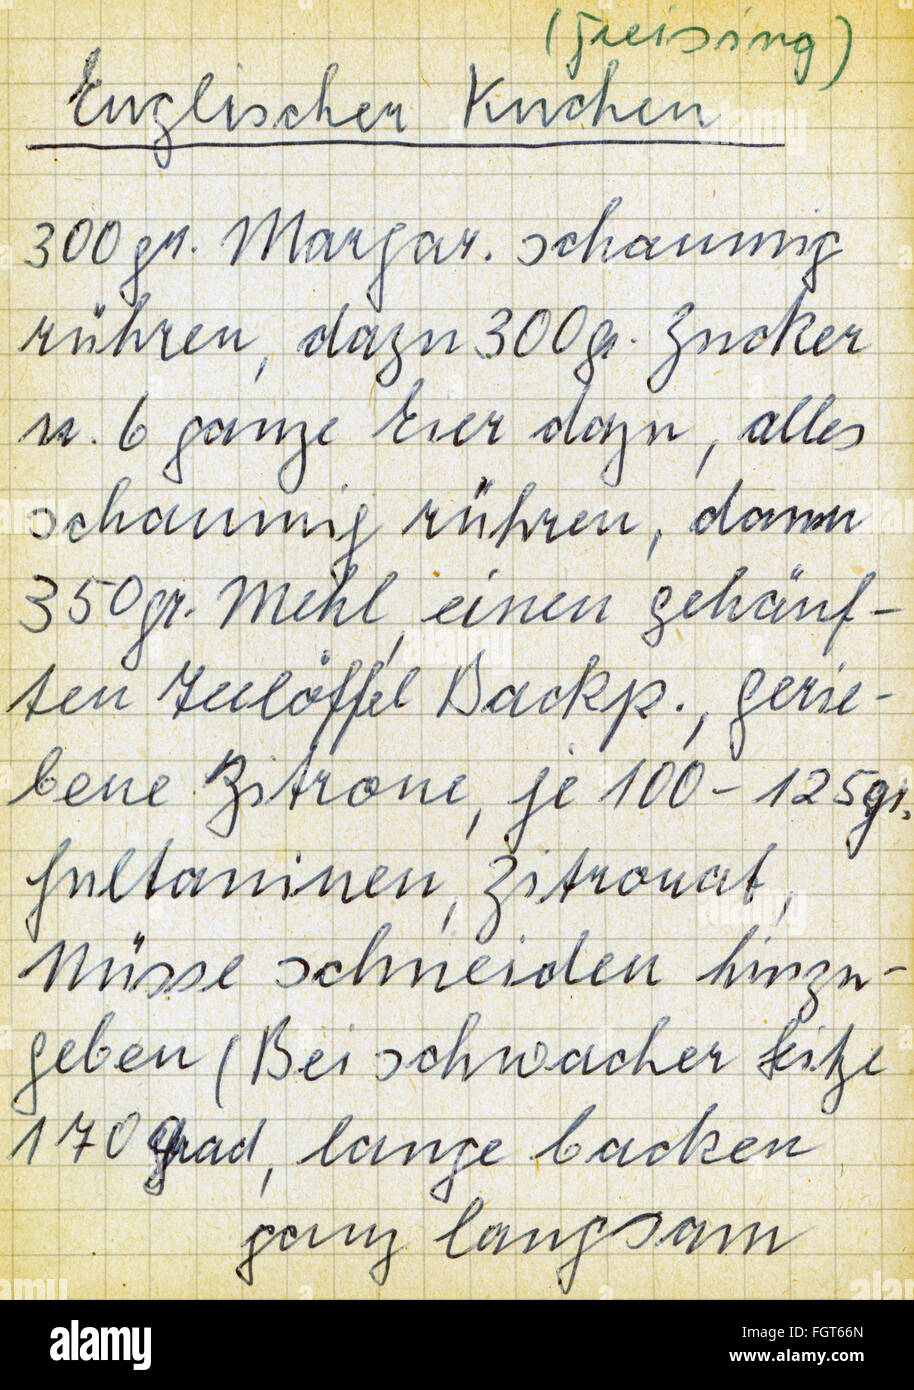 (Freising)
Englischer Kuchen
300gr. Margar. schaumig
rühren, dazu 300gr. Zucker
u. 6 ganze Eier dazu, alles
schaumig rühren, dann
350gr. Mehl, einen gehäuf-
ten Teelöffel Backp., gerie-
bene Zitrone, je 100-125gr.
Sultaninen, Zitronat,
Nüsse schneiden hinzu-
geben (Bei schwacher Hitze
170 Grad, lange backen
ganz langsam
alamy
Image ID: FGT66N
www.alamy.com